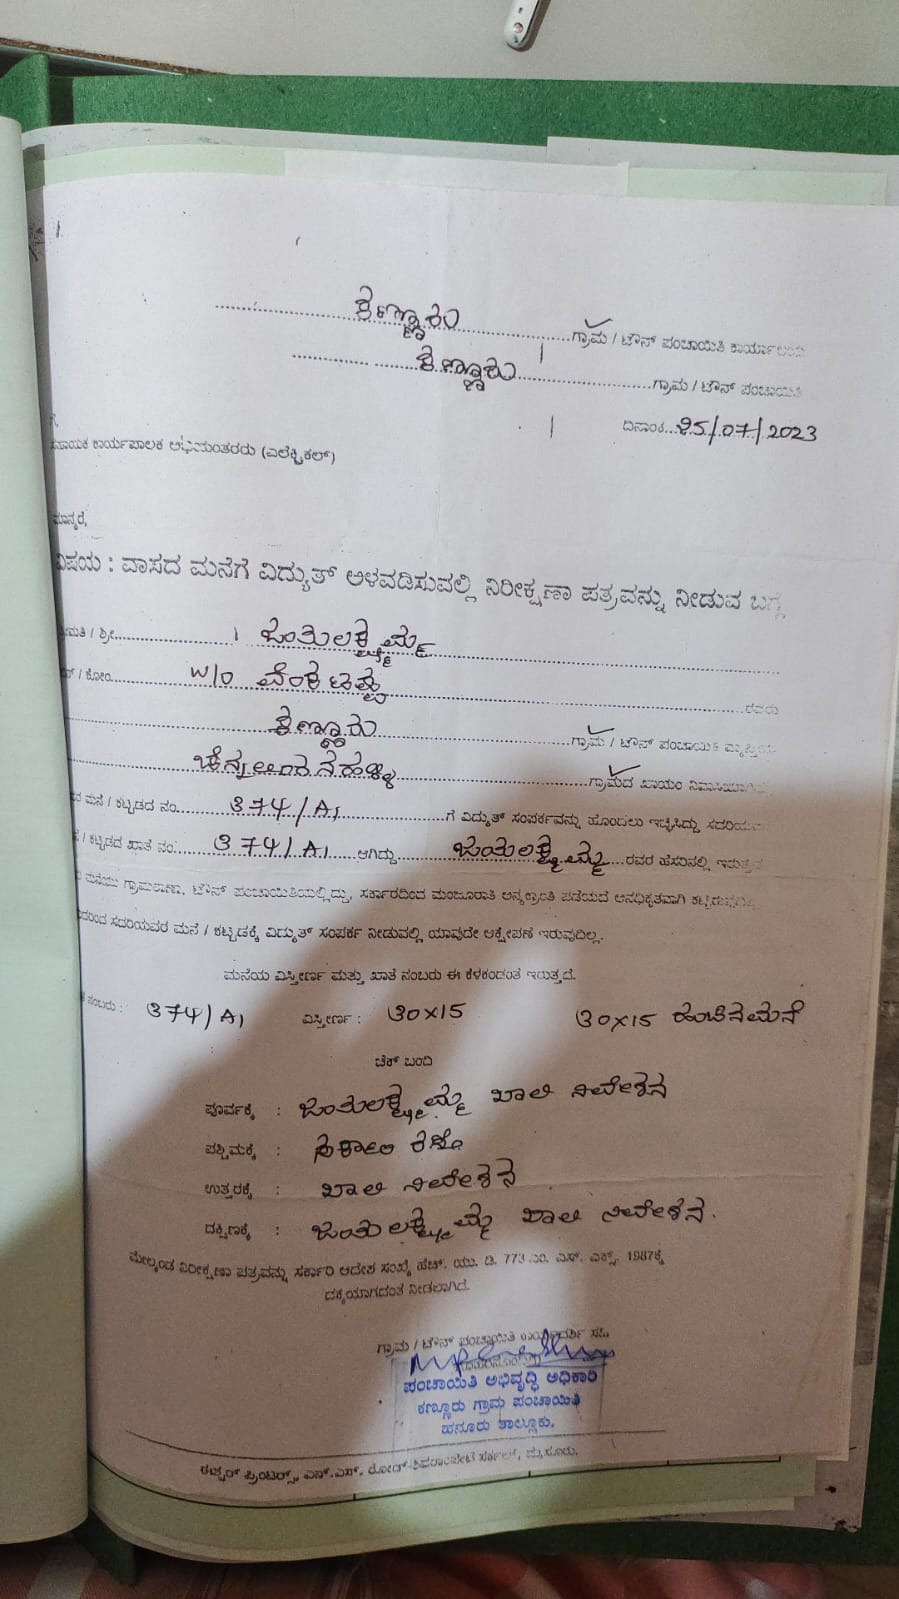 ಕಣ್ಣೂರು ಗ್ರಾಮ / ಟೌನ್ ಪಂಚಾಯಿತಿ ಕಾರ್ಯಾಲಯ
ಕಣ್ಣೂರು ಗ್ರಾಮ / ಟೌನ್ ಪಂಚಾಯಿತಿ
ದಿನಾಂಕ 25/07/2023
ಕಾರ್ಯಪಾಲಕ ಅಭಿಯಂತರರು (ಎಲೆಕ್ಟ್ರಿಕಲ್)
ಮಾನ್ಯರೆ,
ವಿಷಯ : ವಾಸದ ಮನೆಗೆ ವಿದ್ಯುತ್ ಅಳವಡಿಸುವಲ್ಲಿ ನಿರೀಕ್ಷಣಾ ಪತ್ರವನ್ನು ನೀಡುವ ಬಗ್ಗೆ
/ ಶ್ರೀ ಜಯಲಕ್ಷ್ಮಮ್ಮ
/ ಕೋಂ W/O ವೆಂಕಟಪ್ಪ ರವರು
ಕಣ್ಣೂರು ಗ್ರಾಮ / ಟೌನ್ ಪಂಚಾಯಿತಿ
ಗ್ರಾಮದ ಖಾಯಂ
ಮನೆ / ಕಟ್ಟಡದ ನಂ 374/A1 ಗೆ ವಿದ್ಯುತ್ ಸಂಪರ್ಕವನ್ನು ಹೊಂದಲು ಇಚ್ಛಿಸಿದ್ದು
/ ಕಟ್ಟಡದ ಖಾತೆ ನಂ 374/A1 ಆಗಿದ್ದು ಜಯಲಕ್ಷ್ಮಮ್ಮ ರವರ ಹೆಸರಿನಲ್ಲಿ ಇರುತ್ತದೆ
ಮನೆಯು ಗ್ರಾಮಠಾಣಾ, ಟೌನ್ ಪಂಚಾಯಿತಿಯಲ್ಲಿದ್ದು, ಸರ್ಕಾರದಿಂದ ಮಂಜೂರಾತಿ ಅನ್ಯಕ್ರಾಂತಿ ಪಡೆಯದೆ ಅನಧಿಕೃತವಾಗಿ
ಸದರಿಯವರ ಮನೆ / ಕಟ್ಟಡಕ್ಕೆ ವಿದ್ಯುತ್ ಸಂಪರ್ಕ ನೀಡುವಲ್ಲಿ ಯಾವುದೇ ಆಕ್ಷೇಪಣೆ ಇರುವುದಿಲ್ಲ.
ಮನೆಯ ವಿಸ್ತೀರ್ಣ ಮತ್ತು ಖಾತೆ ನಂಬರು ಈ ಕೆಳಕಂಡಂತೆ ಇರುತ್ತದೆ.
ನಂಬರು : 374/A1 ವಿಸ್ತೀರ್ಣ : 30x15 30x15 ಹೆಂಚಿನಮನೆ
ಚೆಕ್ ಬಂದಿ
ಪೂರ್ವಕ್ಕೆ : ಜಯಲಕ್ಷ್ಮಮ್ಮ ಖಾಲಿ ನಿವೇಶನ
ಪಶ್ಚಿಮಕ್ಕೆ :
ಉತ್ತರಕ್ಕೆ : ಖಾಲಿ ನಿವೇಶನ
ದಕ್ಷಿಣಕ್ಕೆ : ಜಯಲಕ್ಷ್ಮಮ್ಮ ಖಾಲಿ ನಿವೇಶನ.
ಮೇಲ್ಕಂಡ ನಿರೀಕ್ಷಣಾ ಪತ್ರವನ್ನು ಸರ್ಕಾರಿ ಆದೇಶ ಸಂಖ್ಯೆ ಹೆಚ್. ಯು. ಡಿ. 773 ಎಂ. ಎಸ್. ಎಕ್ಸ್. 1987ಕ್ಕೆ
ದಕ್ಕೆಯಾಗದಂತೆ ನೀಡಲಾಗಿದೆ.
ಗ್ರಾಮ / ಟೌನ್ ಪಂಚಾಯಿತಿ ಕಾರ್ಯದರ್ಶಿ ಸಹಿ
ಪಂಚಾಯಿತಿ ಅಭಿವೃದ್ಧಿ ಅಧಿಕಾರಿ
ಕಣ್ಣೂರು ಗ್ರಾಮ ಪಂಚಾಯಿತಿ
ಹನೂರು ತಾಲ್ಲೂಕು.
ಪ್ರಿಂಟರ್ಸ್, ಎನ್.ಎಸ್. ರೋಡ್-ಶಿವರಾಂಪೇಟೆ ಸರ್ಕಲ್, ಮೈಸೂರು.